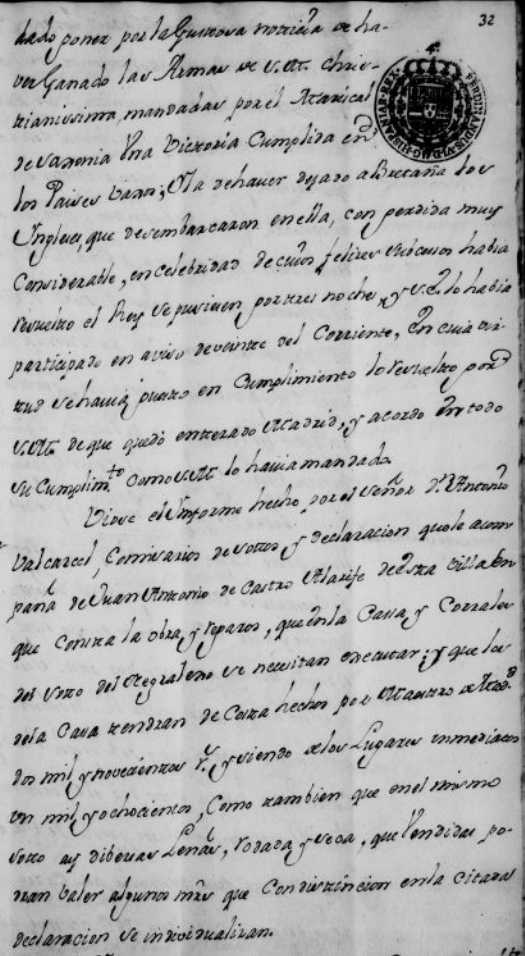 32
dado poner por la Gustosa noticia de ha-
ver Ganado las Armas de S.M. Chris-
tianissima, mandadas por el Mariscal
de Saxonia Una Victoria Cumplida en
los Paises vaxos; Y la de haver dejado a Bretaña los
Yngleses, que desembarcaron en ella, con perdida muy
Considerable, en celebridad de cuios felizes subcesos havia
resuelto el Rey se pusiesen por tres noches, y S.E. lo havia
participado en aviso de veinte del Corriente, En cuia vir-
tud se havia puesto en Cumplimiento lo resuelto por
S.M. de que quedó enterado Madrid, y acordo En todo
su Cumplim.to como S.M. lo havia mandado.
Viose el Ynforme hecho por el señor Dn. Antonio
Valcarcel, Comisario de sottos y declaracion que le acom
paña de Juan Antonio de Castro Alarife de esta Villa En
que Consta la obra, y reparos, que en la Cassa, y Corrales
del sotto del Negralejo se necesitan executar; y que los
de la Casa tendran de Costa hechos por Maestro de Mad.d
dos mil y novecientos r.s y siendo de los Lugares inmediatos
un mil y ochocientos, Como tambien que en el mismo
sotto ay diversas Leñas, rodada y seca, que Vendidas po-
dran Valer algunos mrs que Con distincion en la Citada
declaracion se individualizan.